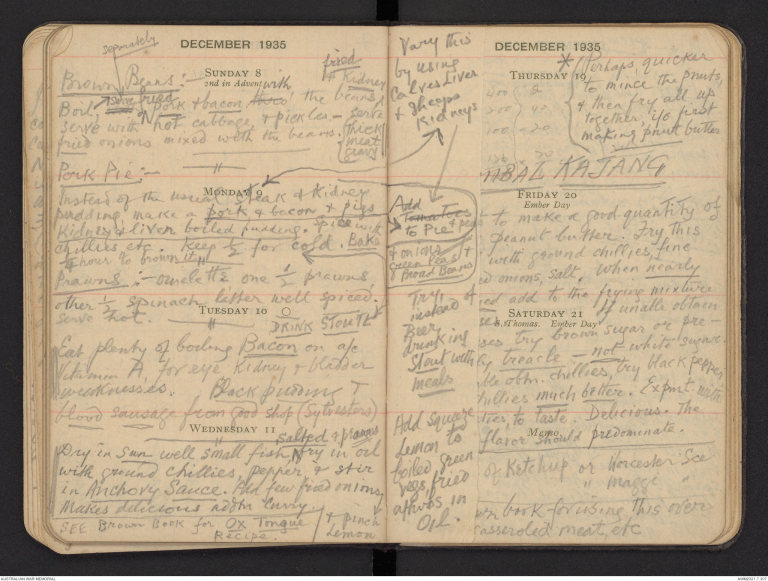 separately
DECEMBER 1935
fried
Brown Beans:- SUNDAY 8 with & Kidney
2nd in Advent
Boil, fried pork & bacon the beans
serve with hot cabbage & pickles - serve
fried onions mixed with the beans. thick
meat
gravy
Pork Pie:-
MONDAY 9
Instead of the usual steak & Kidney
pudding, make a pork & bacon & pigs
Kidney & liver boiled pudding. Spice with
chillies etc. Keep ½ for cold. Bake
½ hour to brown it
Prawns:- omelette one ½ prawns
other ½ spinach litter well spiced.
serve hot.
TUESDAY 10
DRINK STOUT
Eat plenty of boiling Bacon on a/c
Vitamin A for eye Kidney & bladder
weaknesses. Black pudding
blood sausage from good shop (Sylvesters)
WEDNESDAY 11
salted & prawns
Dry in sun well small fish, fry in oil
with ground chillies, pepper, & stir
in Anchovy Sauce. Add few fried onions
Makes delicious addtn Curry
SEE Brown Book for Ox Tongue
Recipe.
& pinch
Lemon
Vary this
by using
Calves Liver
& Sheeps
Kidneys
Add
Tomatoes
to Pie & peas
& onions
Green Peas &
Broad Beans
Try, instead of
Beer,
drinking
Stout with
meals
Add squeeze
Lemon to
boiled green
vegs, fried
afterwds in
Oil.
DECEMBER 1935
THURSDAY 19
* Perhaps quicker
to mince the pnuts,
& then fry all up
together, i/o first
making pnut butter
400
200
100 = 20
SAMBAL KAJANG
FRIDAY 20
Ember Day
to make a good quantity of
Peanut butter. Fry this
with ground chillies, fine
onions, salt, when nearly
add to the frying mixture
SATURDAY 21
S. Thomas. Ember Day
If unable obtain
try brown sugar or pre-
treacle - not white sugar.
obtn. chillies, try black pepper,
chillies much better. Expmt with
to taste. Delicious. The
flavor should predominate.
Memo.
of Ketchup or Worcester Sce
" Maggi "
book for using this over
casseroled meat, etc
AUSTRALIAN WAR MEMORIAL
AWM2021.7.307